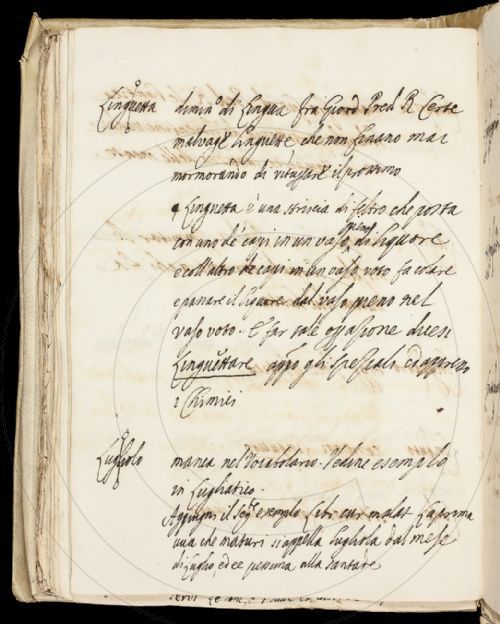 Linguetta dimin.o di Lingua fra Giord Pred R Certe
malvage linguette che non finano mai
mormorando di vituperare il prossimo
¶ Linguetta è una striscia di feltro che posta
con uno de capi in un vaso pieno di liquore
e coll'altro de capi in un vaso voto fa colare
e passare il liquore dal vaso pieno nel
vaso voto. E far tale operazione dicesi
Linguettare appo gli Speziali ed appresso
i Chimici
Lugliolo manca nel Vocabolario. Vedine esempio
in Lugliatico.
Aggiugni il seg.te esempio Libr cur malat La prima
uva che maturi si appella lugliola dal mese
di Luglio, ed è pessima alla sanitade